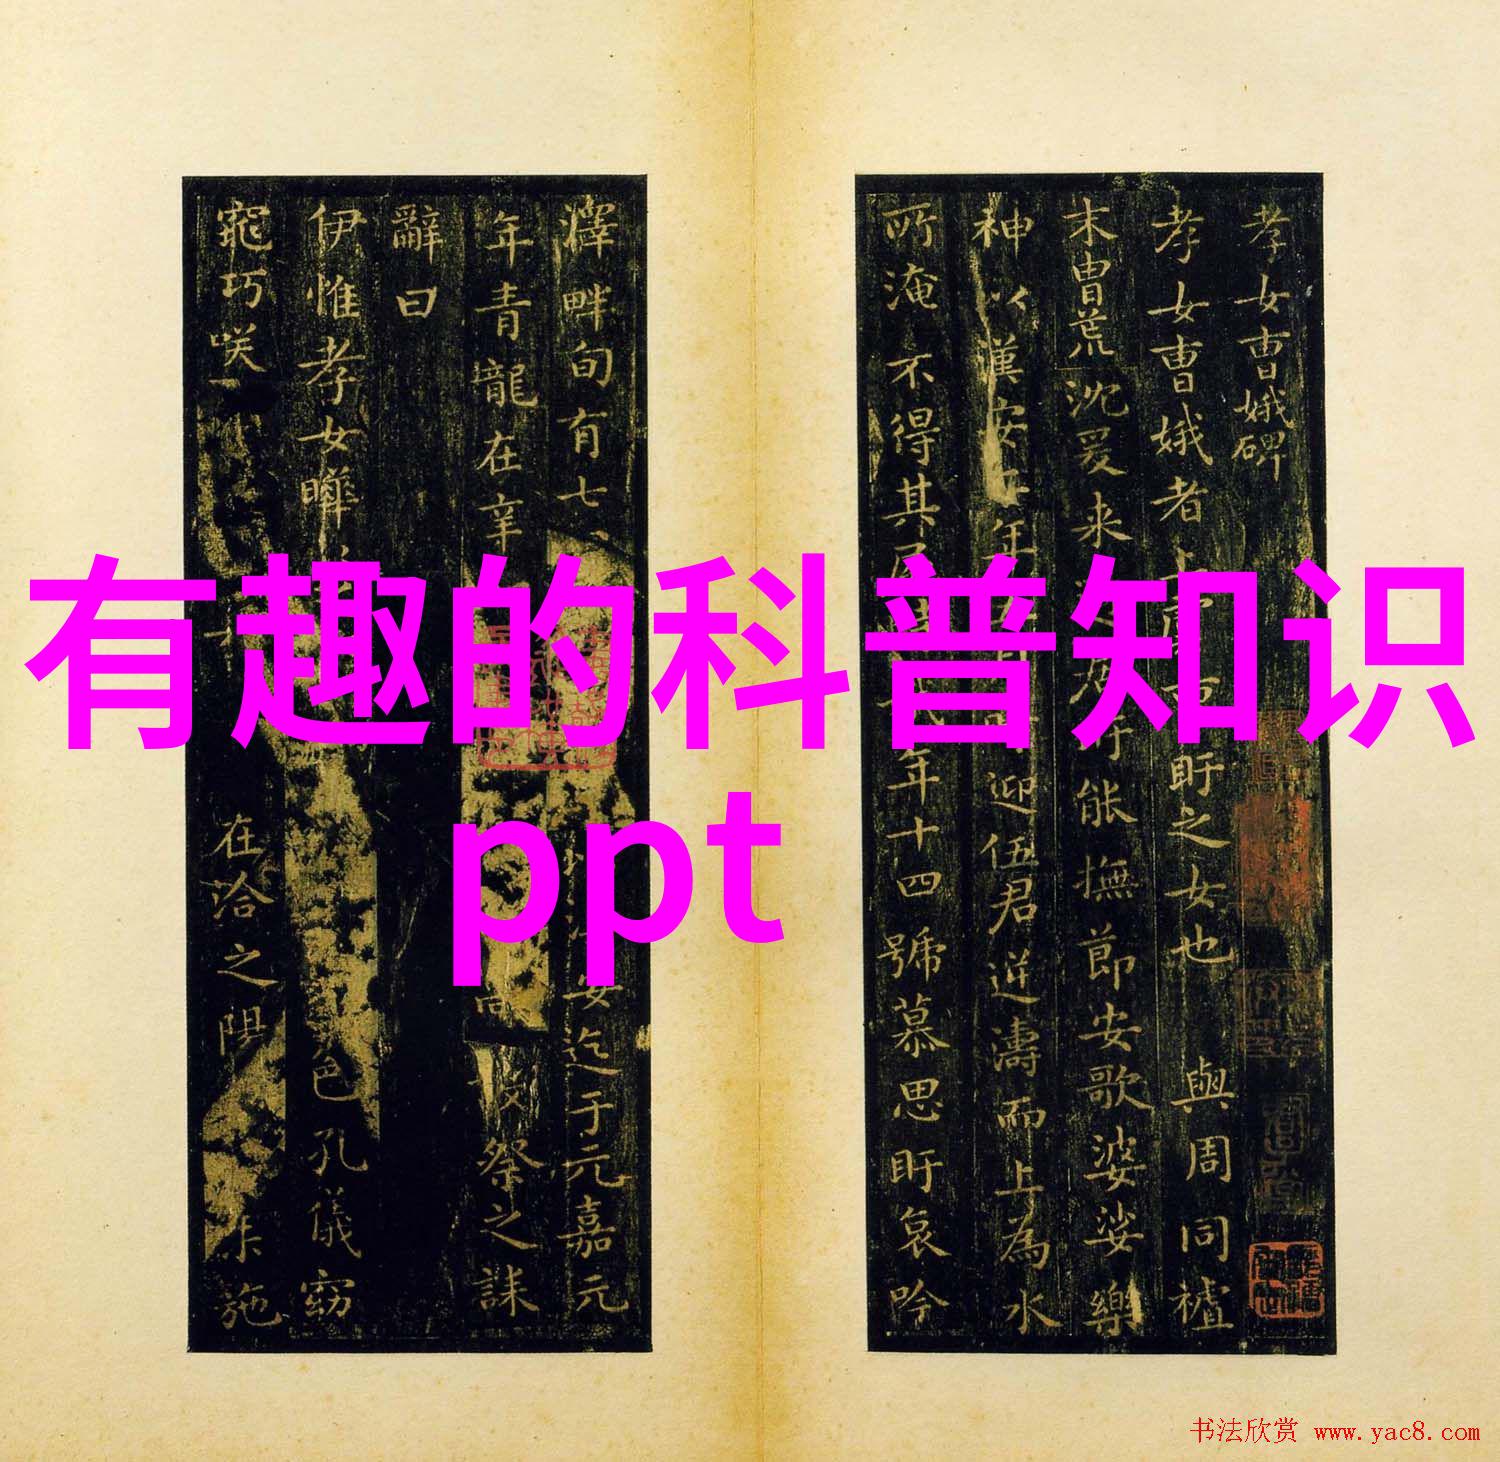 有趣的科普知识
ppt
孝女曹娥碑
孝女曹娥者上盱之女也與周同禇
末曹荒沈爰来能撫節安歌婆娑樂
神以漢安年迎伍君逆濤而上為水
所淹不得其年十四號慕思盱哀吟
澤畔旬有七安迄于元嘉元
年青龍在辛祭之誄
辭曰
伊惟孝女曄色孔儀窈
窕巧咲在洽之陽施
书法欣赏 www.yac8.com